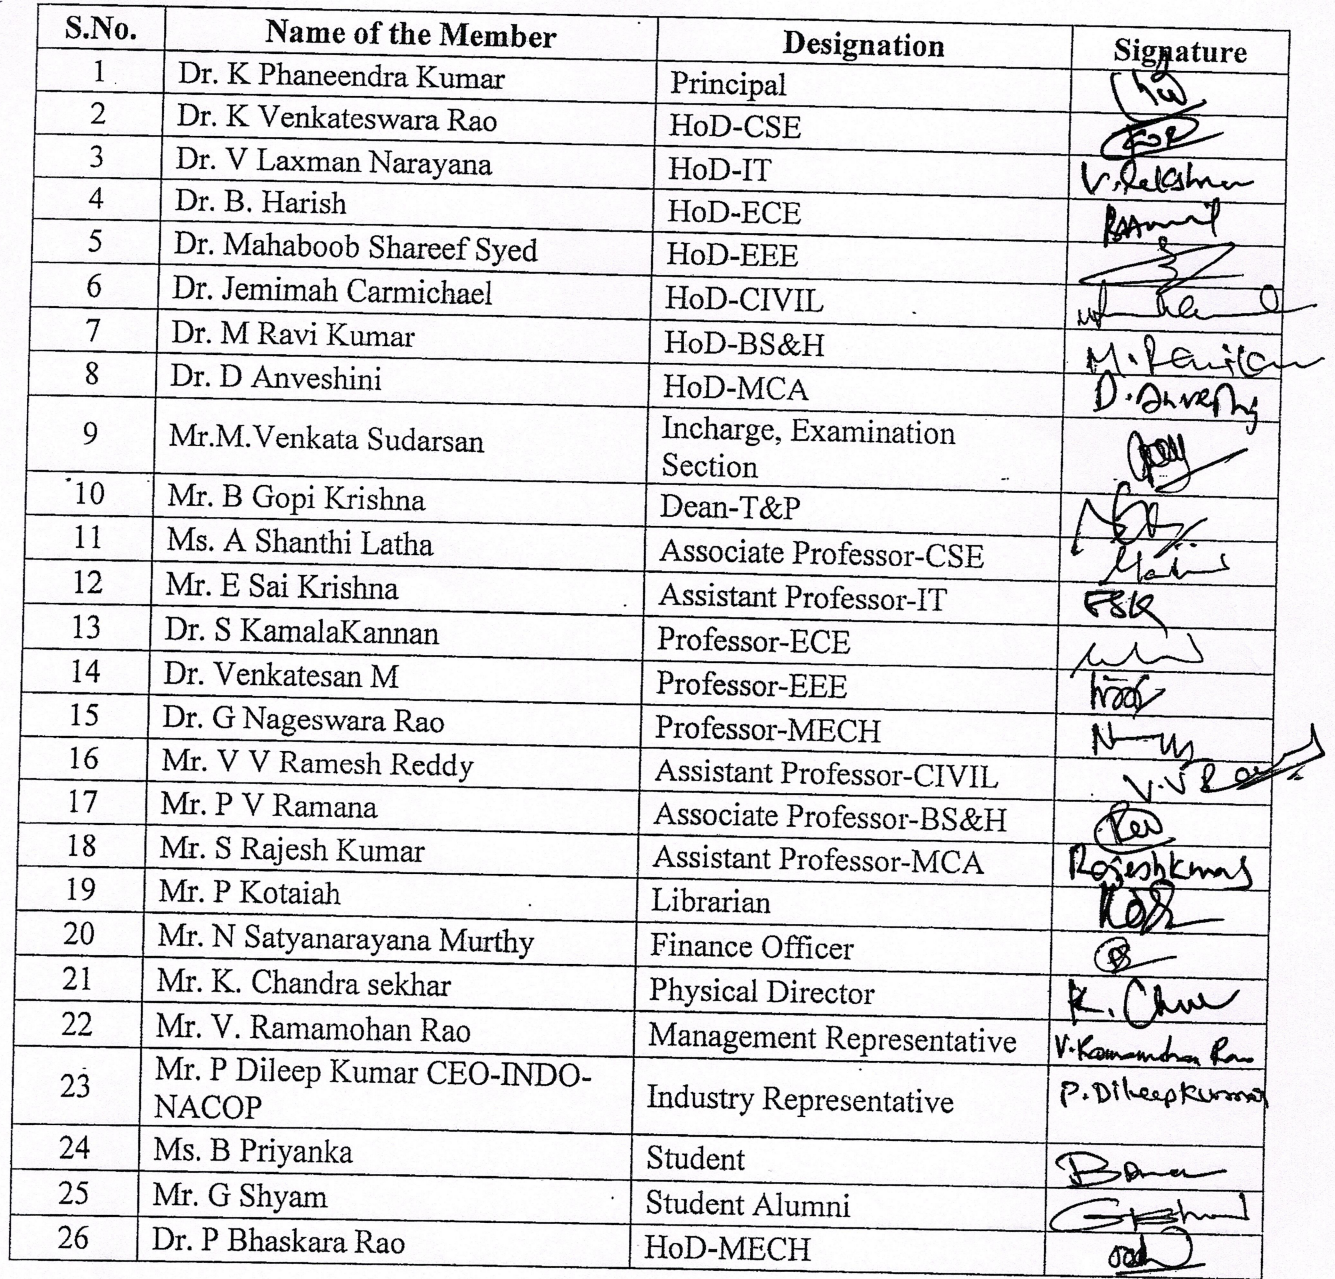 S.No. Name of the Member Designation Signature
1 Dr. K Phaneendra Kumar Principal
2 Dr. K Venkateswara Rao HoD-CSE
3 Dr. V Laxman Narayana HoD-IT
4 Dr. B. Harish HoD-ECE
5 Dr. Mahaboob Shareef Syed HoD-EEE
6 Dr. Jemimah Carmichael HoD-CIVIL
7 Dr. M Ravi Kumar HoD-BS&H
8 Dr. D Anveshini HoD-MCA
9 Mr.M.Venkata Sudarsan Incharge, Examination
Section
10 Mr. B Gopi Krishna Dean-T&P
11 Ms. A Shanthi Latha Associate Professor-CSE
12 Mr. E Sai Krishna Assistant Professor-IT ESK
13 Dr. S KamalaKannan Professor-ECE
14 Dr. Venkatesan M Professor-EEE
15 Dr. G Nageswara Rao Professor-MECH
16 Mr. V V Ramesh Reddy Assistant Professor-CIVIL
17 Mr. P V Ramana Associate Professor-BS&H
18 Mr. S Rajesh Kumar Assistant Professor-MCA Rajeshkumar
19 Mr. P Kotaiah Librarian
20 Mr. N Satyanarayana Murthy Finance Officer
21 Mr. K. Chandra sekhar Physical Director
22 Mr. V. Ramamohan Rao Management Representative
23 Mr. P Dileep Kumar CEO-INDO-
NACOP Industry Representative P.Dileepkumar
24 Ms. B Priyanka Student
25 Mr. G Shyam Student Alumni
26 Dr. P Bhaskara Rao HoD-MECH